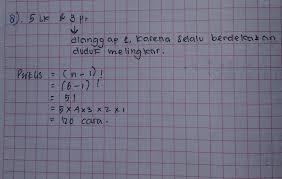 8). 5 LK & 3 pr
↓
dianggap 1, karena selalu berdekatan
duduk melingkar.
PsikLis = (n - 1)!
= (6 - 1)!
= 5!
= 5 x 4 x 3 x 2 x 1
= 120 cara.